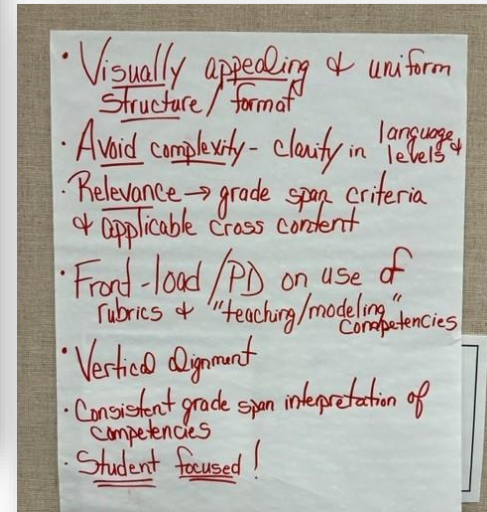 · Visually appealing & uniform
structure / format
· Avoid complexity - clarity in language &
levels
· Relevance → grade span criteria
& applicable cross content
· Front-load / PD on use of
rubrics & "teaching/modeling"
competencies
· Vertical alignment
· Consistent grade span interpretation of
competencies
· Student focused!